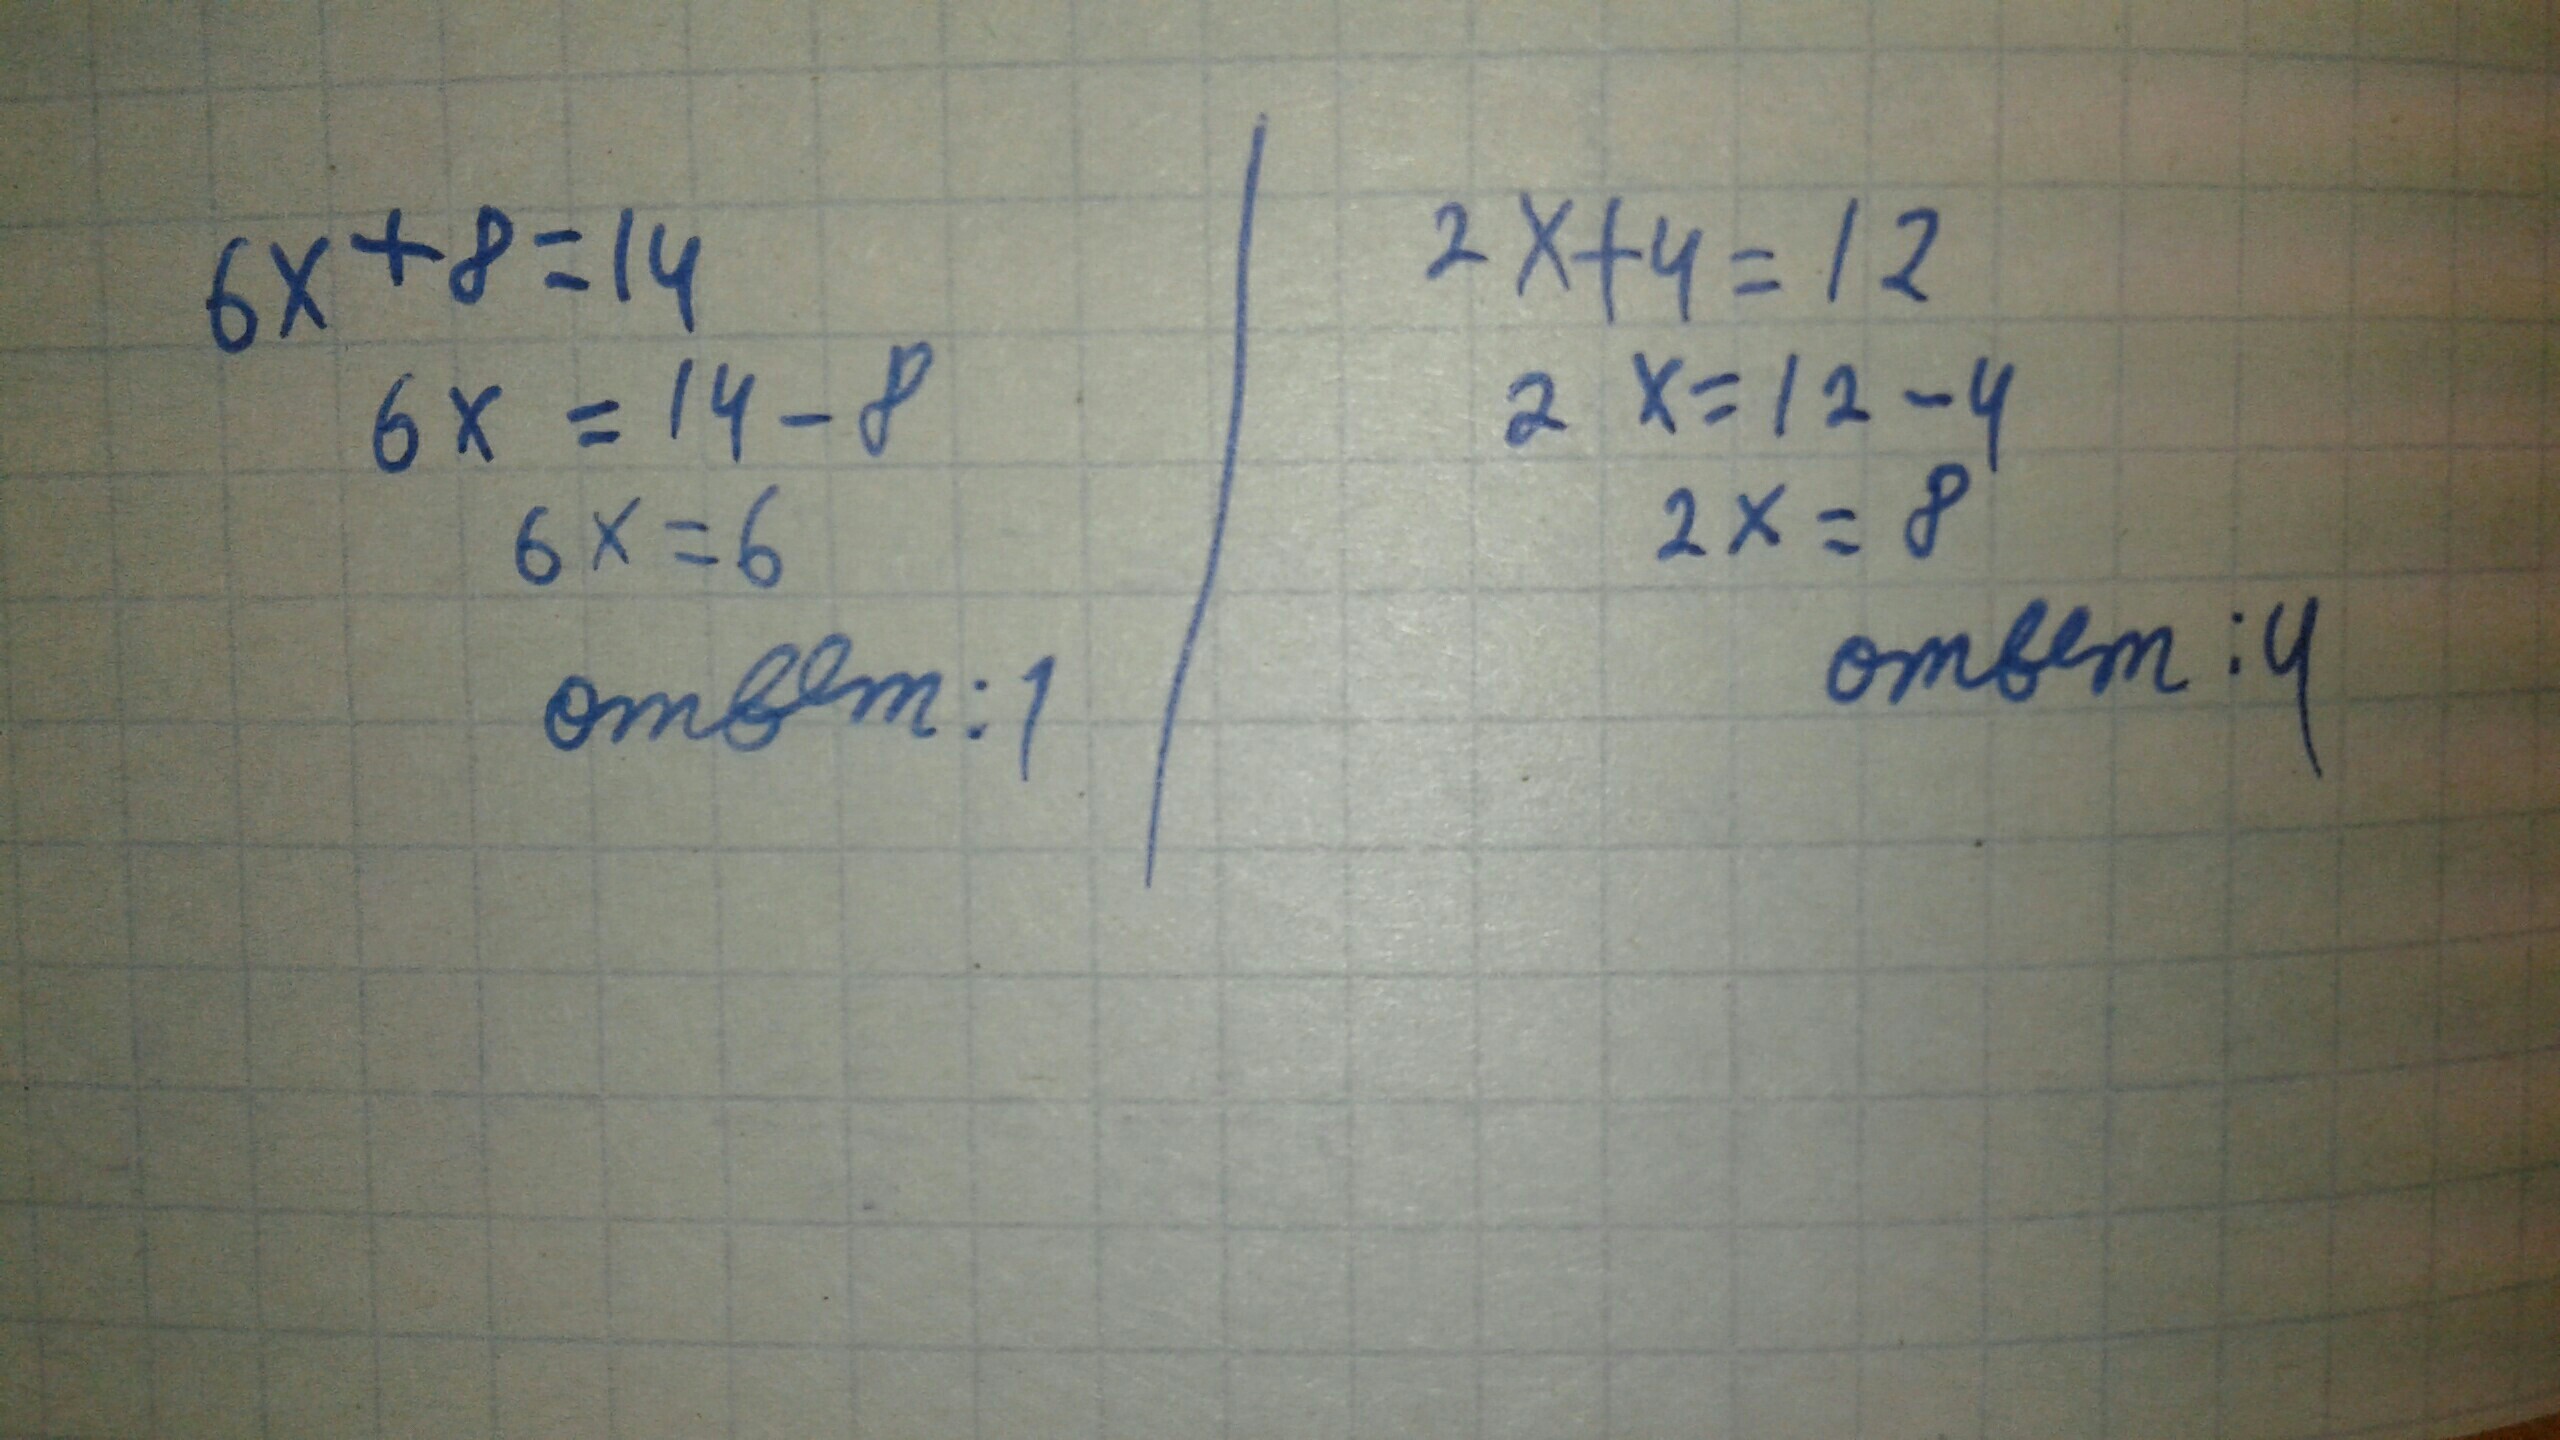 6x+8=14
6x = 14-8
6x=6
ответ:1
2x+4=12
2 x=12-4
2x=8
ответ:4